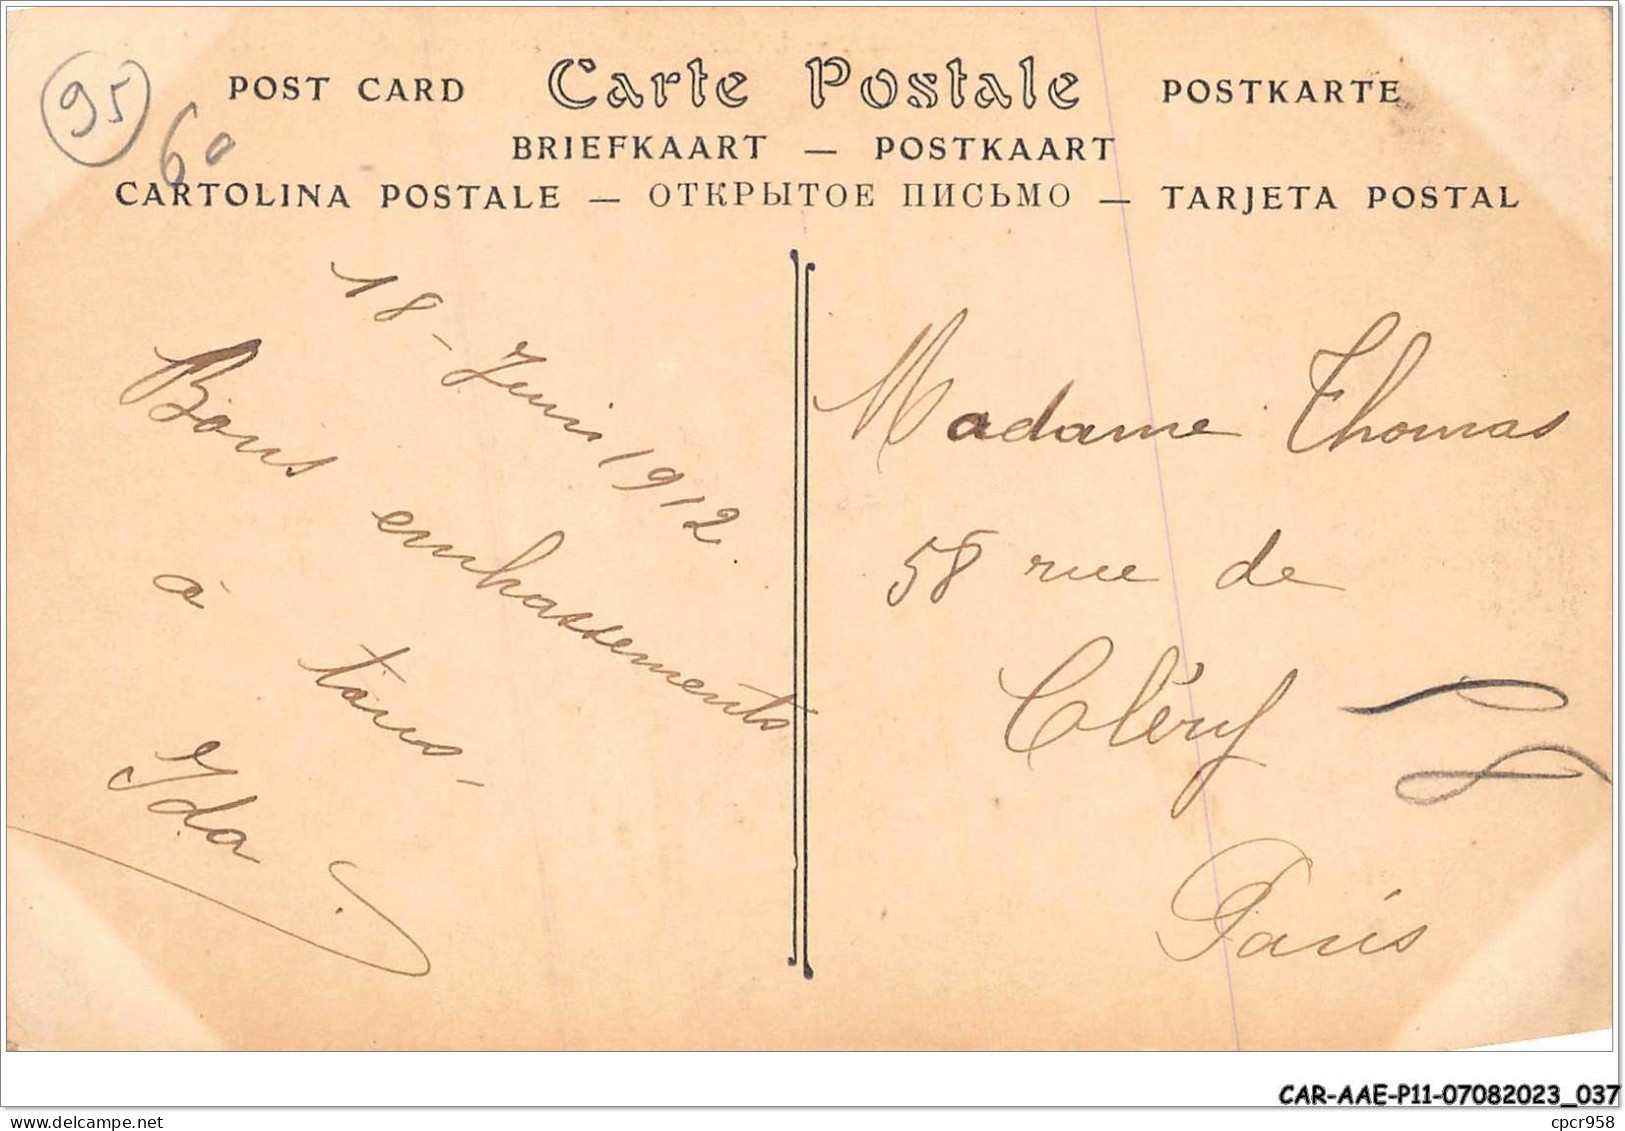 95
60
POST CARD Carte Postale POSTKARTE
BRIEFKAART — POSTKAART
CARTOLINA POSTALE — ОТКРЫТОЕ ПИСЬМО — TARJETA POSTAL
18 - Juin 1912.
Bons embrassements
à tous -
Ida
Madame Thomas
58 rue de
Cléry
Paris
CAR-AAE-P11-07082023_037
delcampe.net
cpcr958